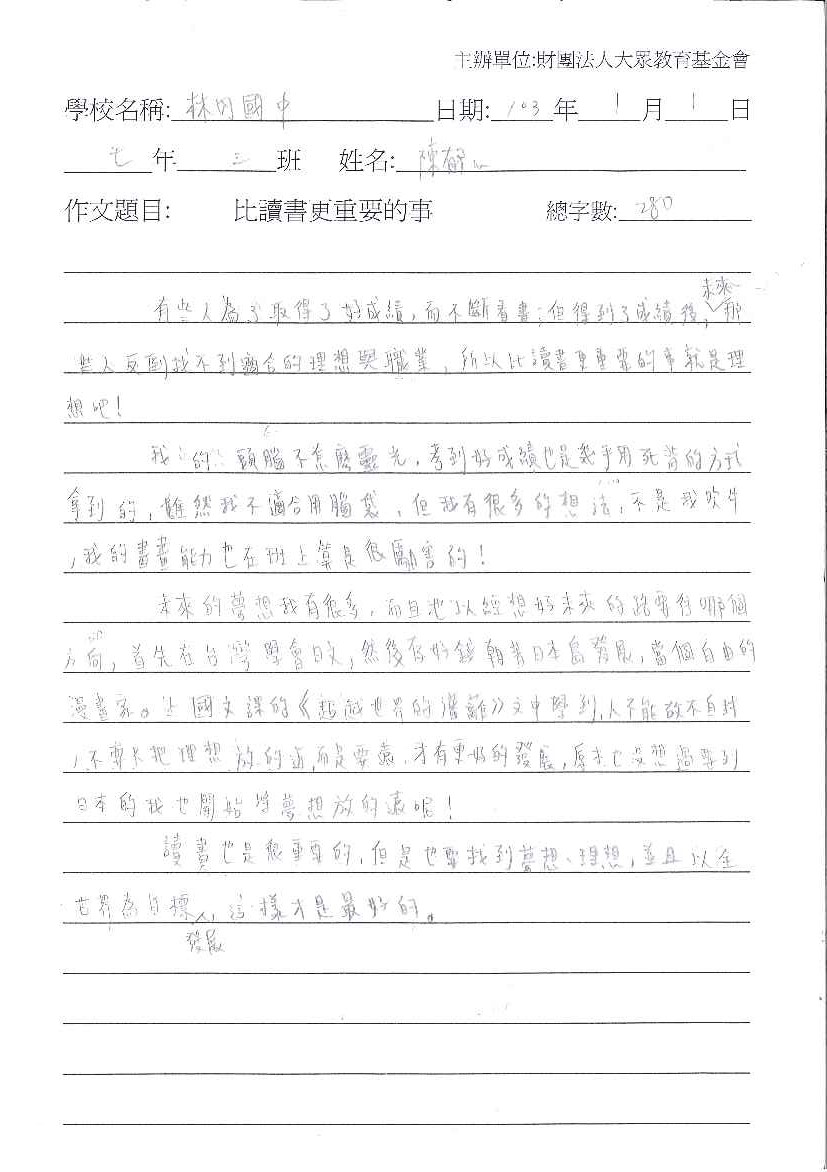 主辦單位:財團法人大眾教育基金會
學校名稱: 林內國中 日期: 103 年 1 月 1 日
七 年 三 班 姓名: 陳
作文題目: 比讀書更重要的事 總字數: 280
有些人為了取得了好成績，而不斷看書；但得到了成績後，未來那
些人反倒找不到適合的理想與職業，所以比讀書更重要的事就是理
想吧！
我的頭腦不怎麼靈光，考到好成績也是幾乎用死背的方式
拿到的，雖然我不適合用腦袋，但我有很多的想法，不是我吹牛
，我的畫畫能力也在班上算是很厲害的！
未來的夢想我有很多，而且也已經想好未來的路要往哪個
方向，首先在台灣學會日文，然後存好錢朝著日本島發展，當個自由的
漫畫家。國文課的《超越世界的藩籬》文中學到，人不能故不自封
，不要只把理想放的近，而是要遠，才有更好的發展，原本也沒想過要到
日本的我也開始將夢想放的遠呢！
讀書也是很重要的，但是也要找到夢想、理想，並且以全
世界為目標發展，這樣才是最好的。